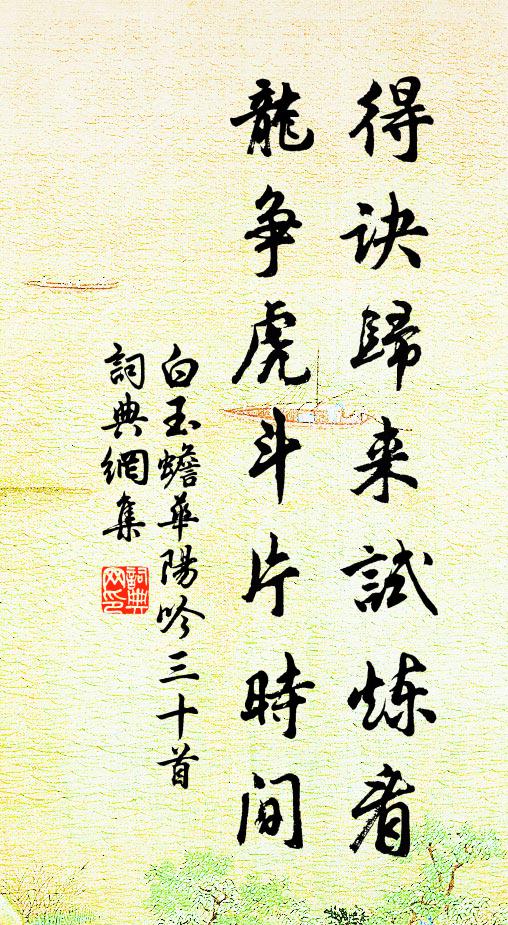 得诀歸来試炼看
龍争虎斗片時间
白玉蟾華陽吟三十首
詞典網集
詞典網印